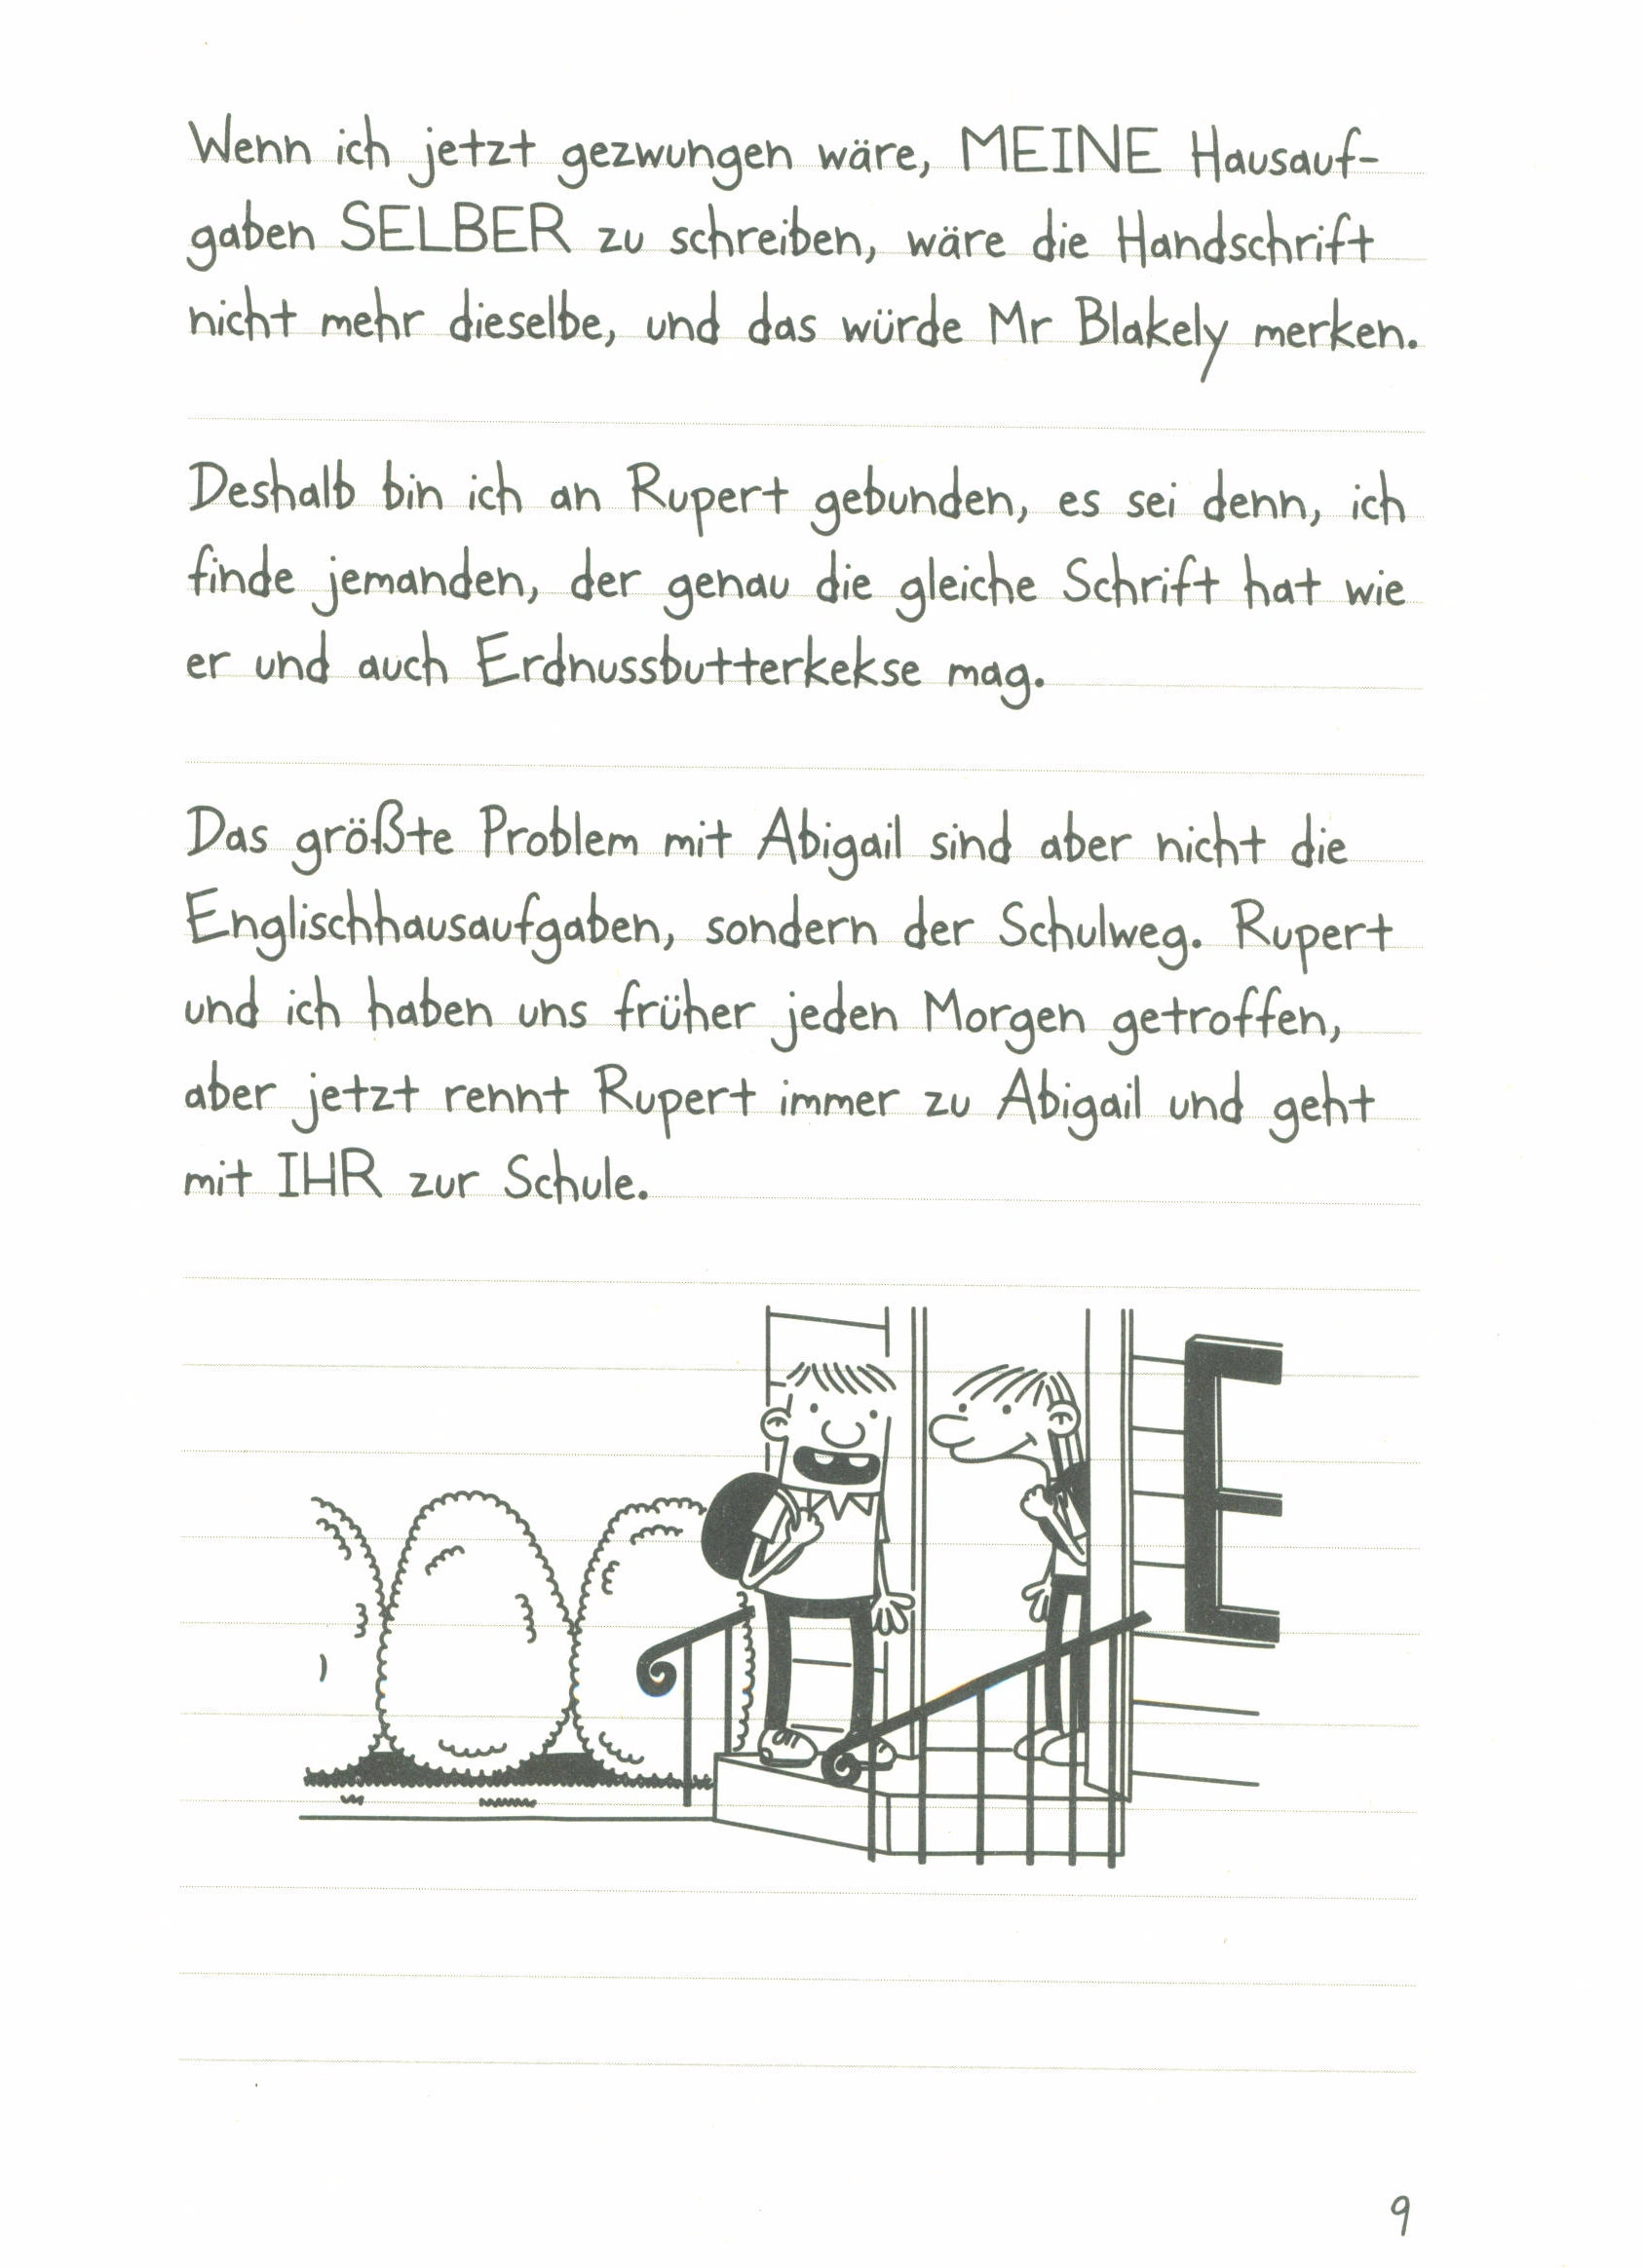 Wenn ich jetzt gezwungen wäre, MEINE Hausauf-
gaben SELBER zu schreiben, wäre die Handschrift
nicht mehr dieselbe, und das würde Mr Blakely merken.
Deshalb bin ich an Rupert gebunden, es sei denn, ich
finde jemanden, der genau die gleiche Schrift hat wie
er und auch Erdnussbutterkekse mag.
Das größte Problem mit Abigail sind aber nicht die
Englischhausaufgaben, sondern der Schulweg. Rupert
und ich haben uns früher jeden Morgen getroffen,
aber jetzt rennt Rupert immer zu Abigail und geht
mit IHR zur Schule.
9